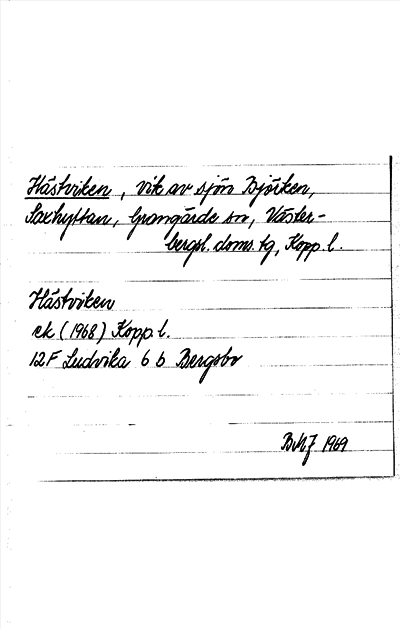 Hästviken, vik av sjön Björken,
Saxhyttan, Grangärde sn, Väster-
bergsl. doms. tg, Kopp. l.
Hästviken
ek (1968) Kopp. l.
12F Ludvika 6 b Bergsbo
BMJ 1969